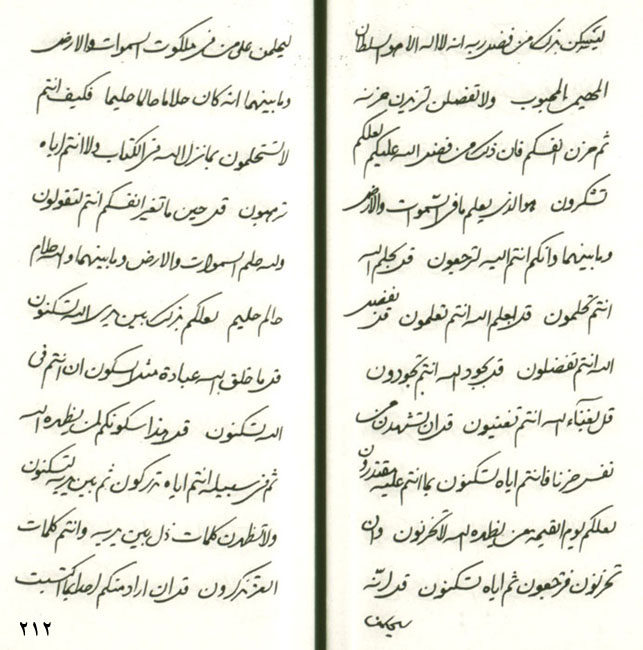 لتسكن بذلك من فضل ربه انه لا اله الا هو السلطان
المهيمن المحبوب ولا تفضلن حزنه
ثم حزن انفسكم فان ذلك من فضل الله عليكم لعلكم
تشكرون هو الذى يعلم ما فى السموات والارض
وما بينهما وانكم انتم اليه لترجعون قل بحلم الله
انتم تحلمون قل بعلم الله انتم تعلمون قل بفضل
الله انتم تفضلون قل بجود الله انتم تجودون
قل بغناء الله انتم تغنيون قل ان تشهدن من
نفس حزنا فانتم اياه لتسكنون بما انتم عليه مقتدرون
لعلكم يوم القيمة من يظهره الله لا تحزنون وان
تحزنون فترجعون ثم اياه تسكنون قل انه
ليعلمن على من فى ملكوت السموات والارض
وما بينهما انه كان حلاما حالما حليما فكيف انتم
لا تستحلمون بما نزل الله فى الكتاب ولا انتم اياه
ترهبون قل حين ما تغير انفسكم انتم لتقولون
ولله حلم السموات والارض وما بينهما والله حلام
حالم حليم لعلكم بذلك بين يدى الله لتسكنون
قل ما خلق الله عبادة مثل السكون ان انتم فى
الله تسكنون قل هذا سكونكم لمن يظهره الله
ثم فى سبيله انتم اياه تدركون ثم بين يديه لتسكنون
ولا تظهرن كلمات ذل بين يديه وانتم كلمات
العز تذكرون قل ان اراد منكم احد بما اكتسبت
٢١٢